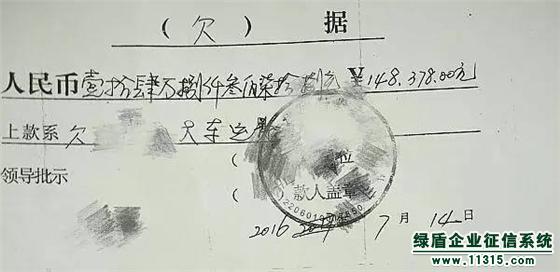 （欠）据
人民币壹拾肆万捌仟叁佰柒拾捌元 ￥148,378.00元
上款系 欠 火车运
（ 位
领导批示
（ 款人盖章
2016 7月14日
绿盾企业征信系统
www.11315.com